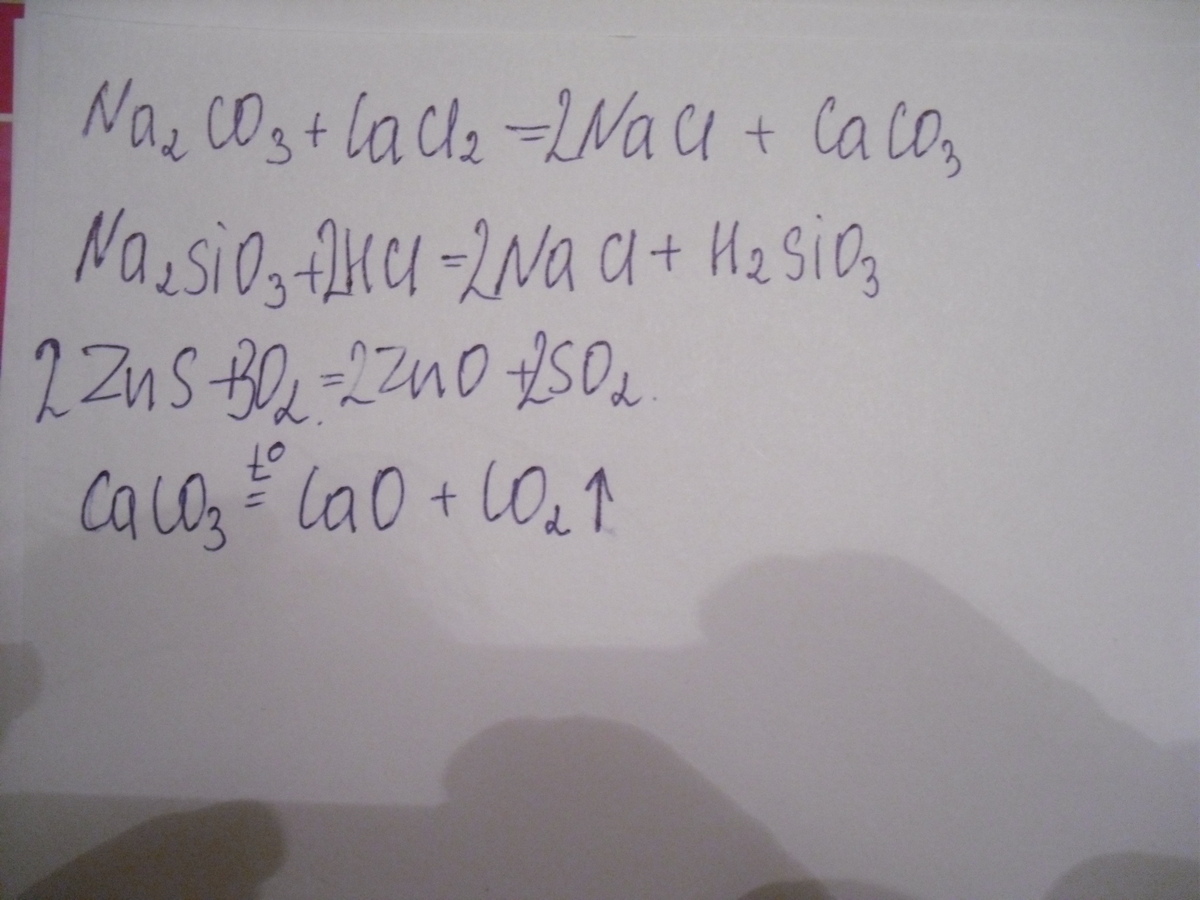 Na₂CO₃ + CaCl₂ = 2NaCl + CaCO₃
Na₂SiO₃ + 2HCl = 2NaCl + H₂SiO₃
2ZnS + 3O₂ = 2ZnO + 2SO₂
CaCO₃ =ᵗ° CaO + CO₂↑